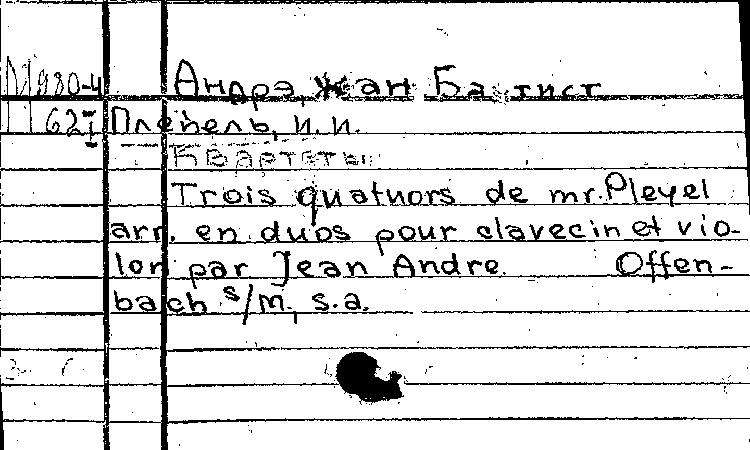 М980-4 Андрэ, Жан Батист
П 62I Плейель, И. И.
Квартеты
Trois quatuors de mr. Pleyel
arr. en duos pour clavecin et vio-
lon par Jean Andre. Offen-
bach s/m, s.a.